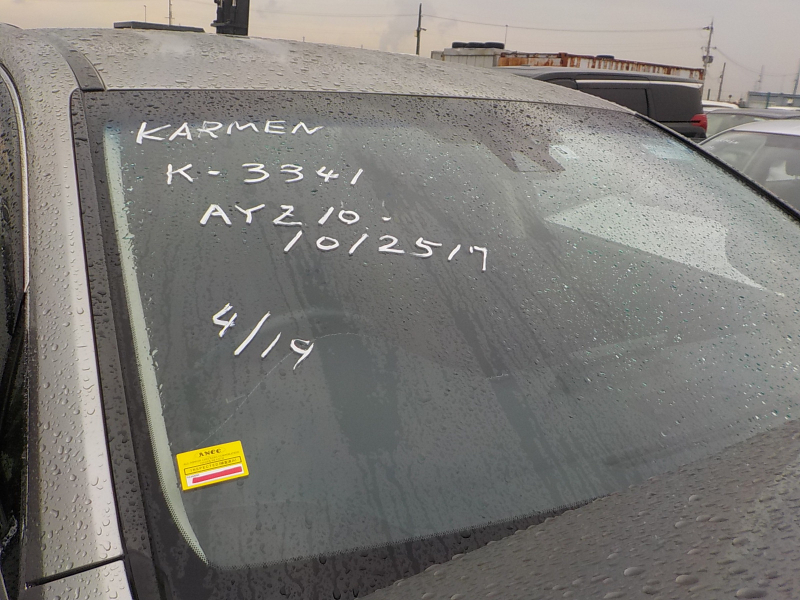 KARMEN
K-3341
AYZ10-
1012517
4/19